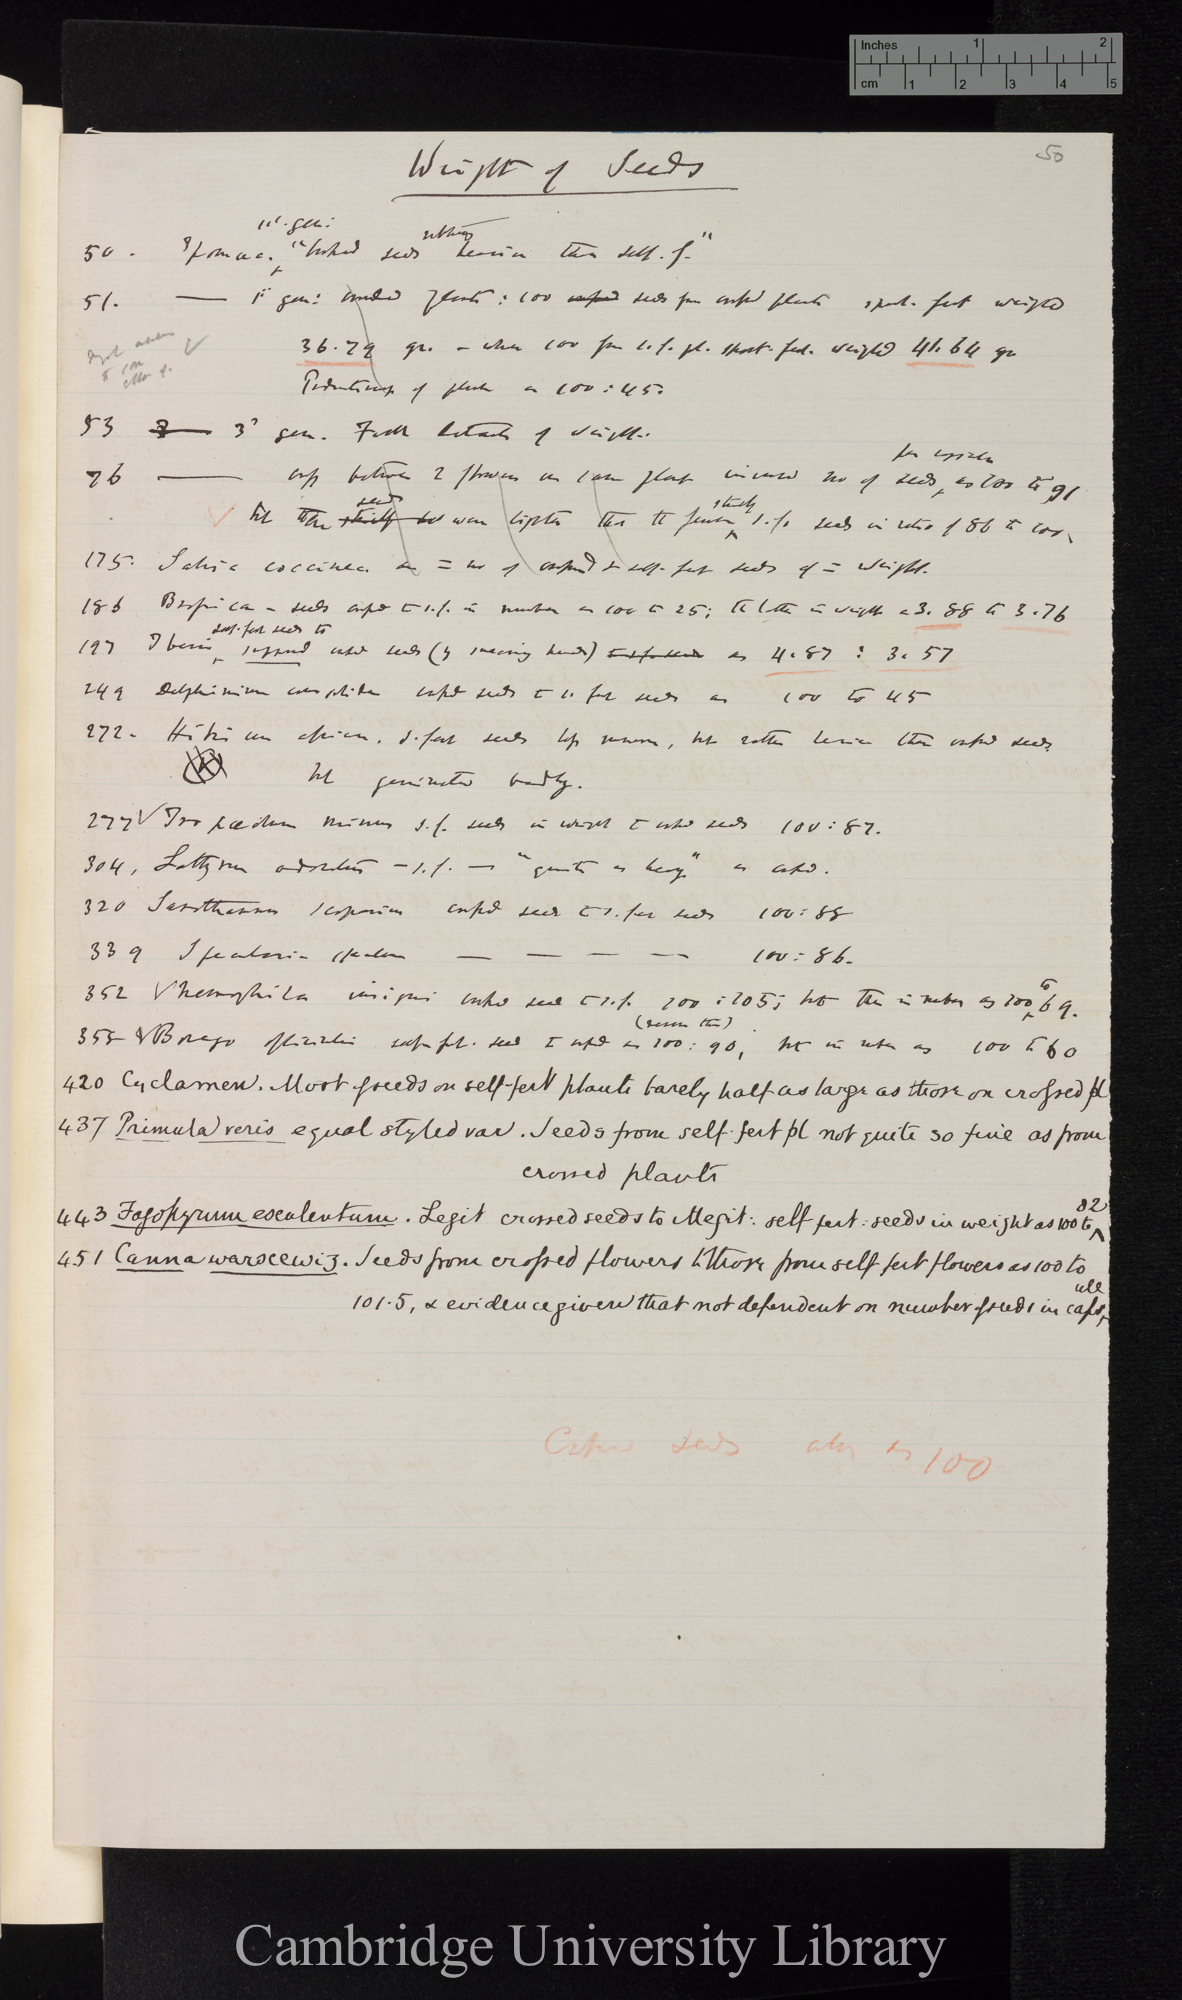 Inches 1 2
cm 1 2 3 4 5
50
Weight of Seeds
1st gen:
50. Ipomoea. "crossed seeds rather heavier than self. f."
51. — 1st gen: crossed plants: 100 seeds from crossed plants spont. fert weighed
36.79 gr. — when 100 from s.f. pl. spont. fert. weighed 41.64 gr
Productiveness of plants as 100 : 45.
53 — 3d gen. Full details of weight.
per capsule
76 — cross between 2 flowers on same plant increased no of seeds, as 100 to 91
seeds
but the were lighter than the fewer s.f. seeds in ratio of 86 to 100.
175. Salvia coccinea = no of crossed & self-fert seeds of = weight.
186 — seeds crossed to s.f. in number as 100 to 25; in weight as 3.88 to 3.76
self-fert seeds to
197 Iberis, crossed seeds (by ) as 4.87 : 3.57
249 Delphinium consolida crossed seeds to s. fert seeds as 100 to 45
272. Hibiscus african. s.fert seeds less numerous, but rather heavier than crossed seeds
but germinated badly.
277 Tropaeolum minus s.f. seeds in weight to crossed seeds 100 : 87.
304, Lathyrus odoratus — s.f. — "quite as heavy" as crossed.
320 Sarothamnus scoparius crossed seed to s.fer seeds 100 : 88
339 Specularia speculum — — — — 100 : 86.
352 Nemophila insignis crossed seed to s.f. 100 : 105; but then in number as 100 to 69.
355 Borago officinalis self-fert. seed to crossed as 100 : 90, but in number as 100 to 60
420 Cyclamen. Most seeds on self-fert plants barely half as large as those on crossed pl
437 Primula veris equal styled var. Seeds from self-fert pl not quite so fine as from
crossed plants
82
443 Fagopyrum esculentum. Legit crossed seeds to illegit: self fert: seeds in weight as 100 to
451 Canna warscewiz. Seeds from crossed flowers to those from self fert flowers as 100 to
101.5, & evidence given that not dependent on number of seeds in capsule
Crossed seeds as 100
Cambridge University Library